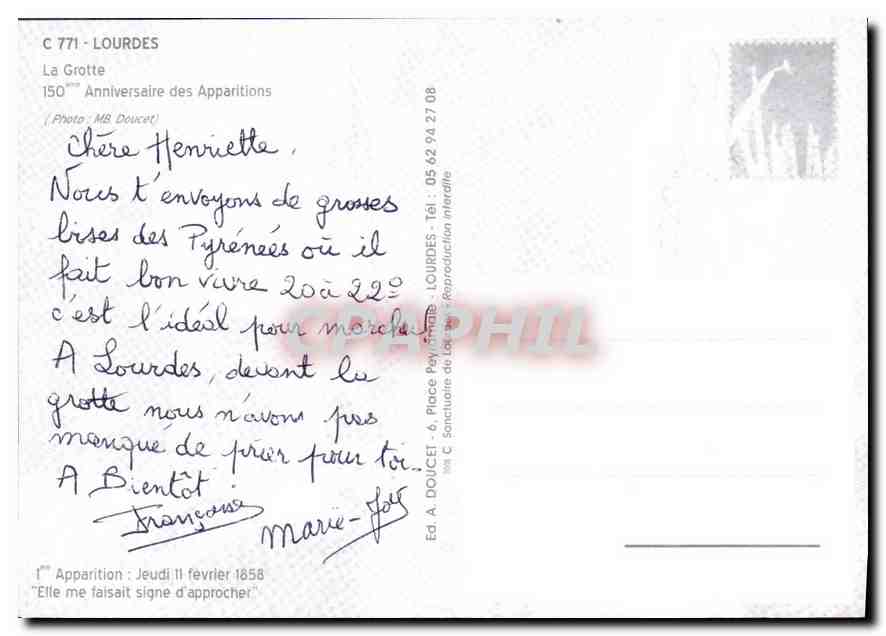 C 771 - LOURDES
La Grotte
150ème Anniversaire des Apparitions
(Photo : MB. Doucet)
Chère Henriette,
Nous t'envoyons de grosses
bises des Pyrénées où il
fait bon vivre 20 à 22°
c'est l'idéal pour marcher!
A Lourdes, devant la
grotte nous n'avons pas
manqué de prier pour toi..
A Bientôt
Françoise
Marie-Jo
1ère Apparition : Jeudi 11 février 1858
"Elle me faisait signe d'approcher"
Ed. A. DOUCET - 6, Place Peyramale - LOURDES - Tél : 05 62 94 27 08
C Sanctuaire de Lourdes - Reproduction interdite
CPAPHIL